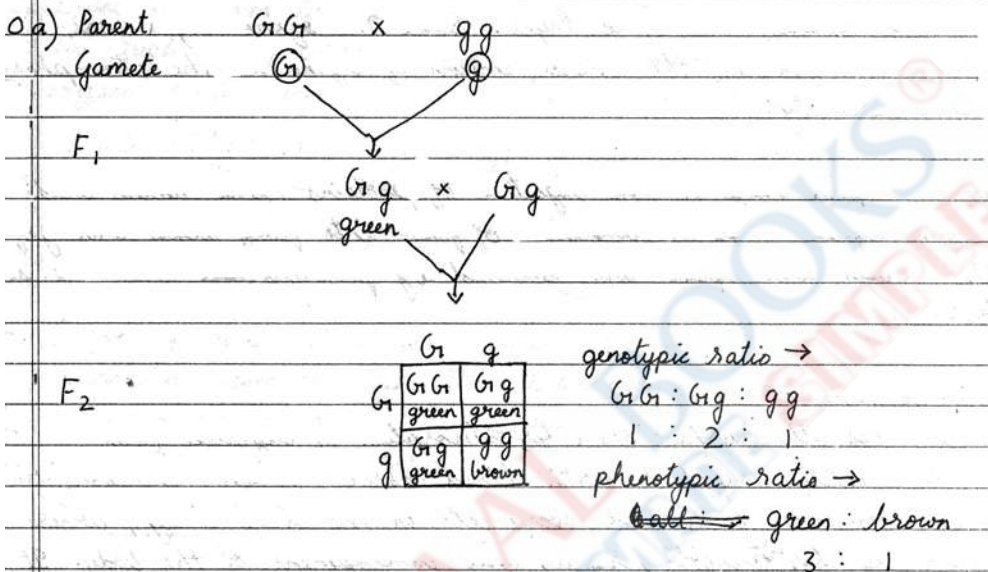 0 a) Parent GG x gg
Gamete G g
F1
Gg x Gg
green
G g
F2
G GG Gg
green green
g Gg gg
green brown
genotypic ratio →
GG : Gg : gg
1 : 2 : 1
phenotypic ratio →
green : brown
3 : 1
BOOKS
SIMPLE